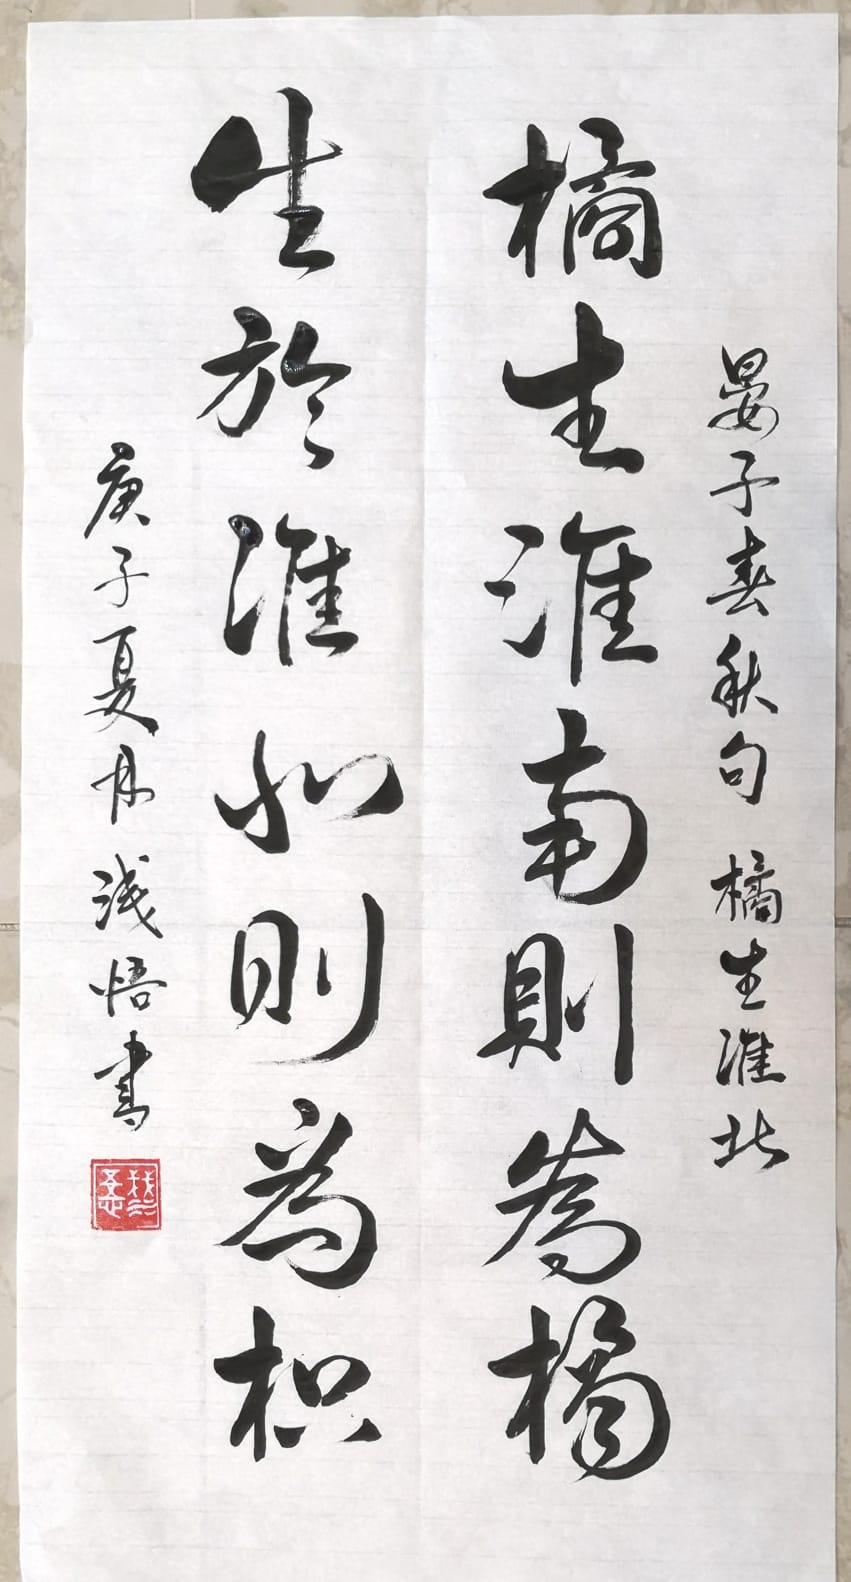 晏子春秋句 橘生淮北
橘生淮南則為橘
生於淮北則為枳
庚子夏月 淺悟書